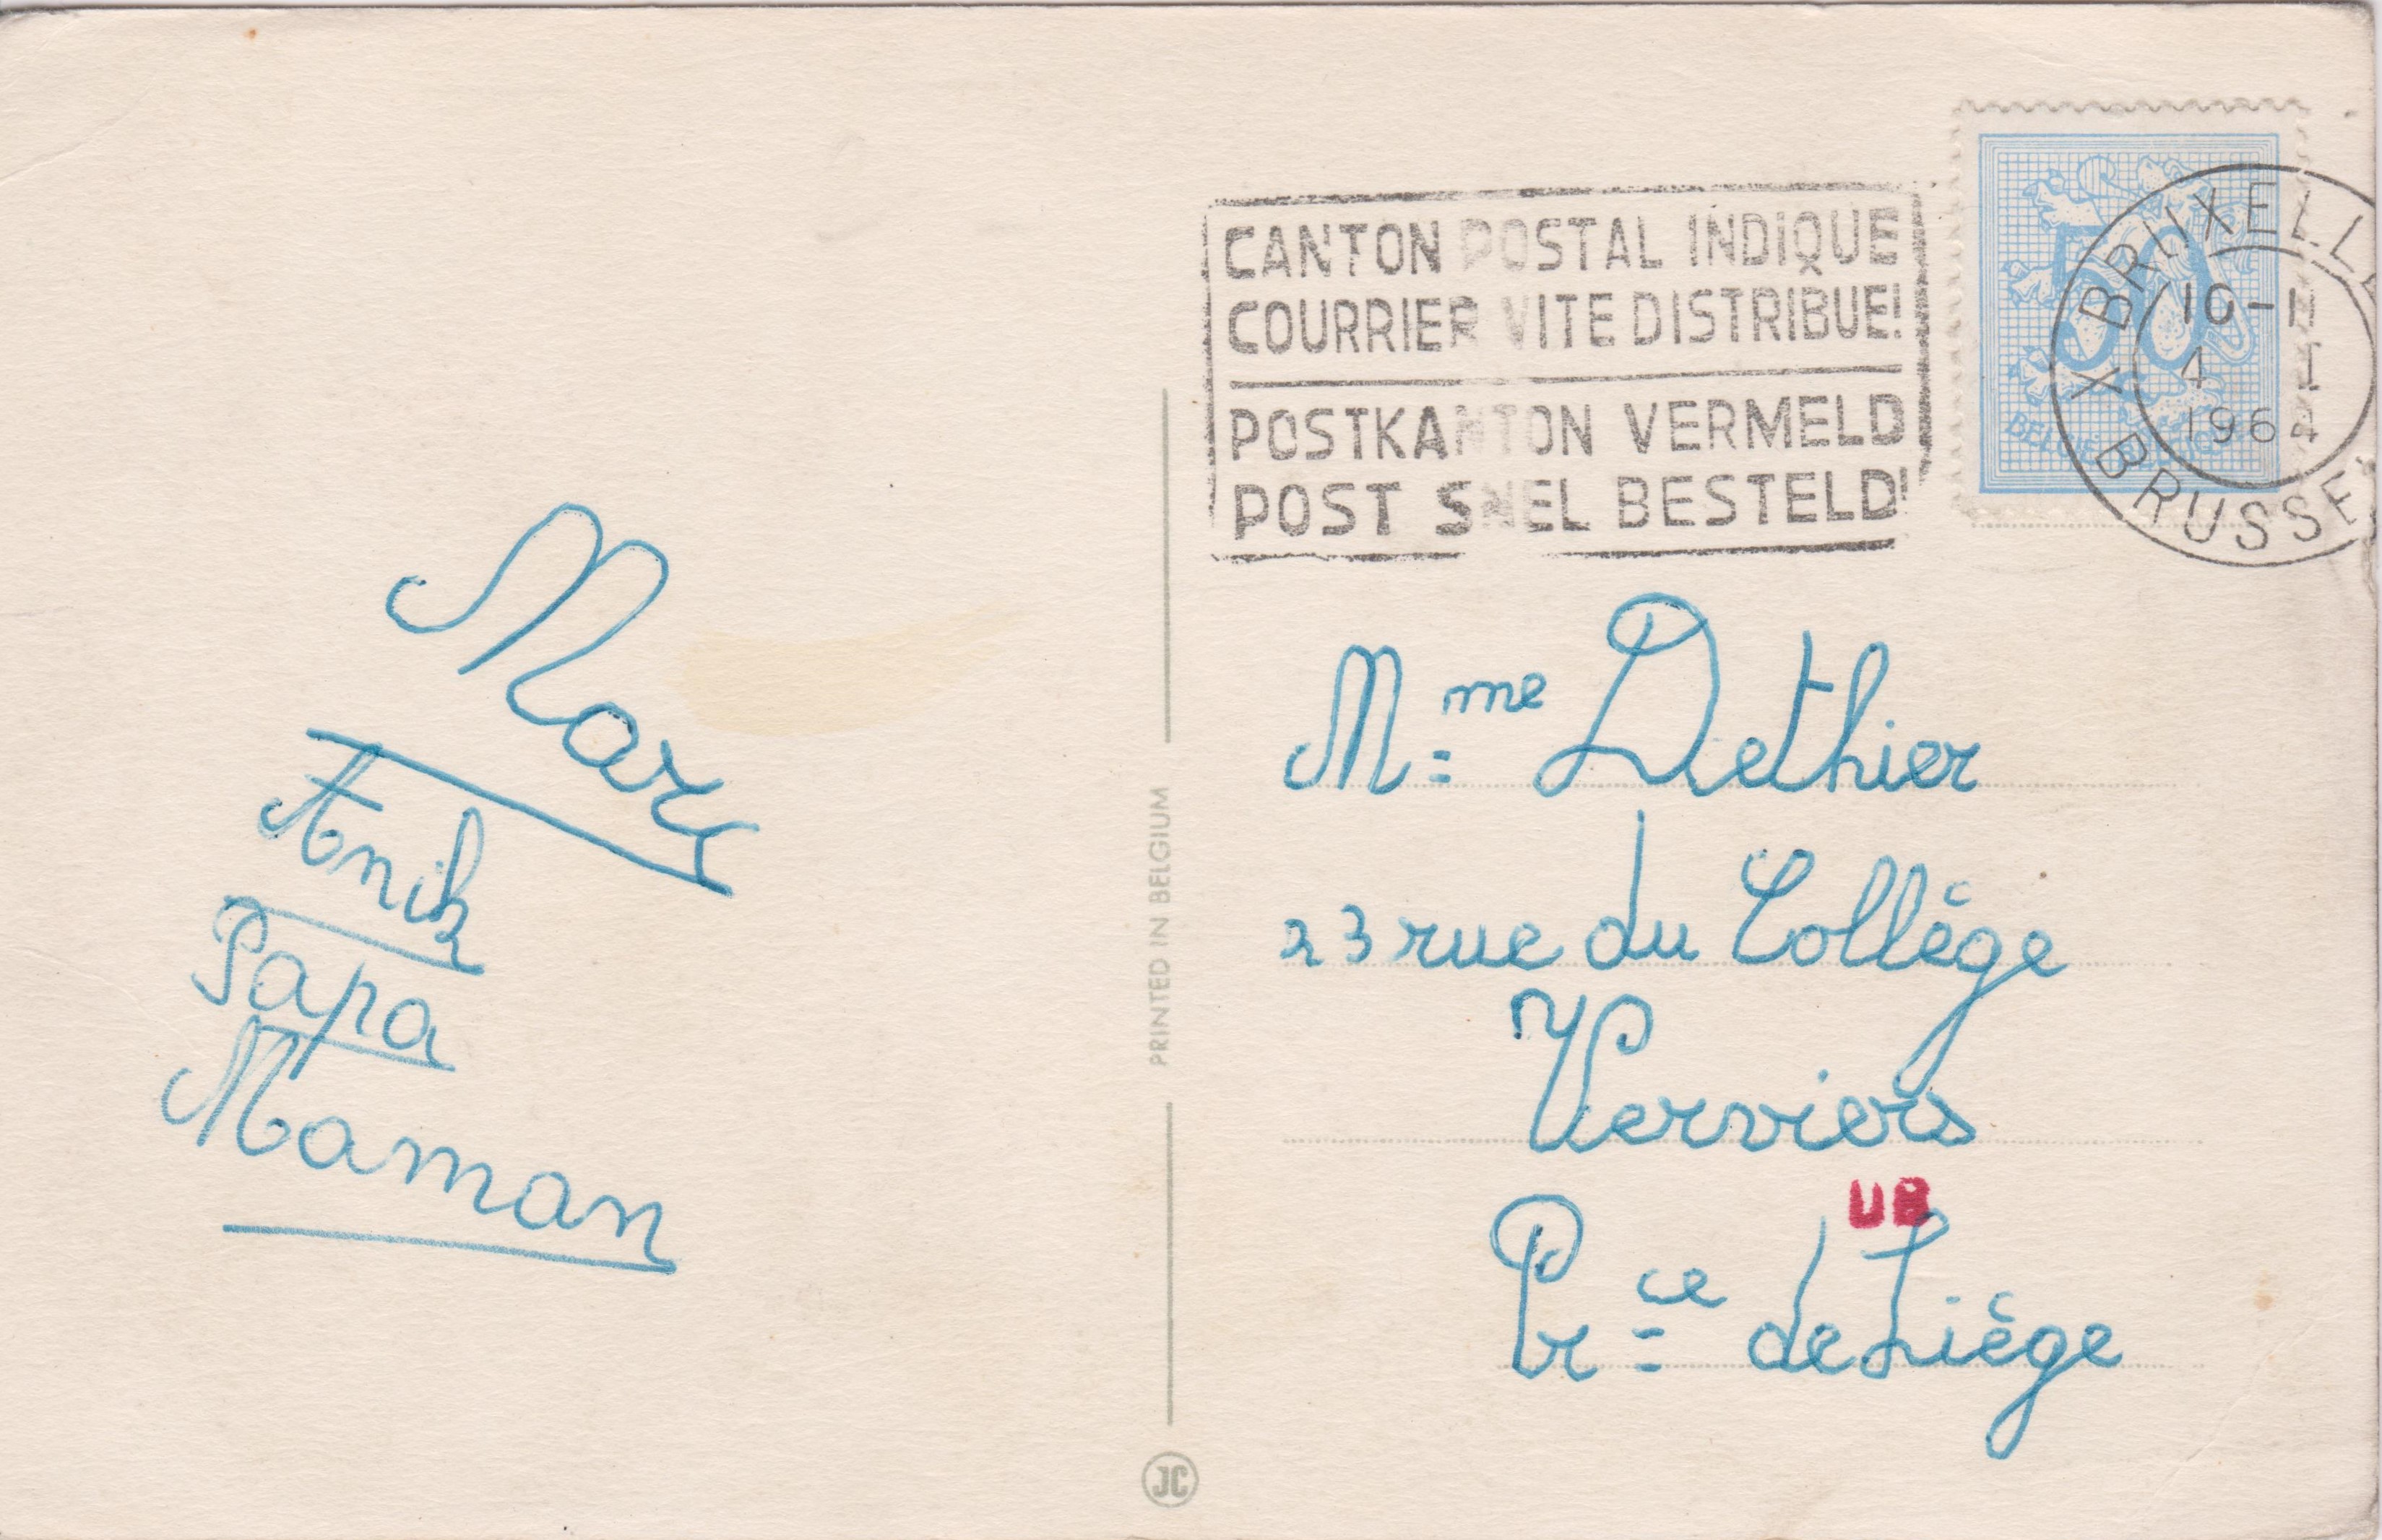 Marc
Anik
Papa
Maman
PRINTED IN BELGIUM
JC
CANTON POSTAL INDIQUE
COURRIER VITE DISTRIBUE!
POSTKANTON VERMELD
POST SNEL BESTELD!
50
BRUXELL
X
10-11
4 I
1964
BRUSSE
Mme Dethier
23 rue du Collège
Verviers
UB
Prce de Liège